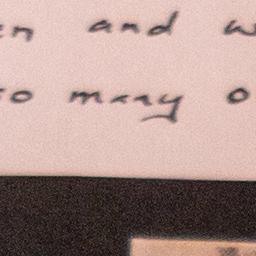 en and w
so many o